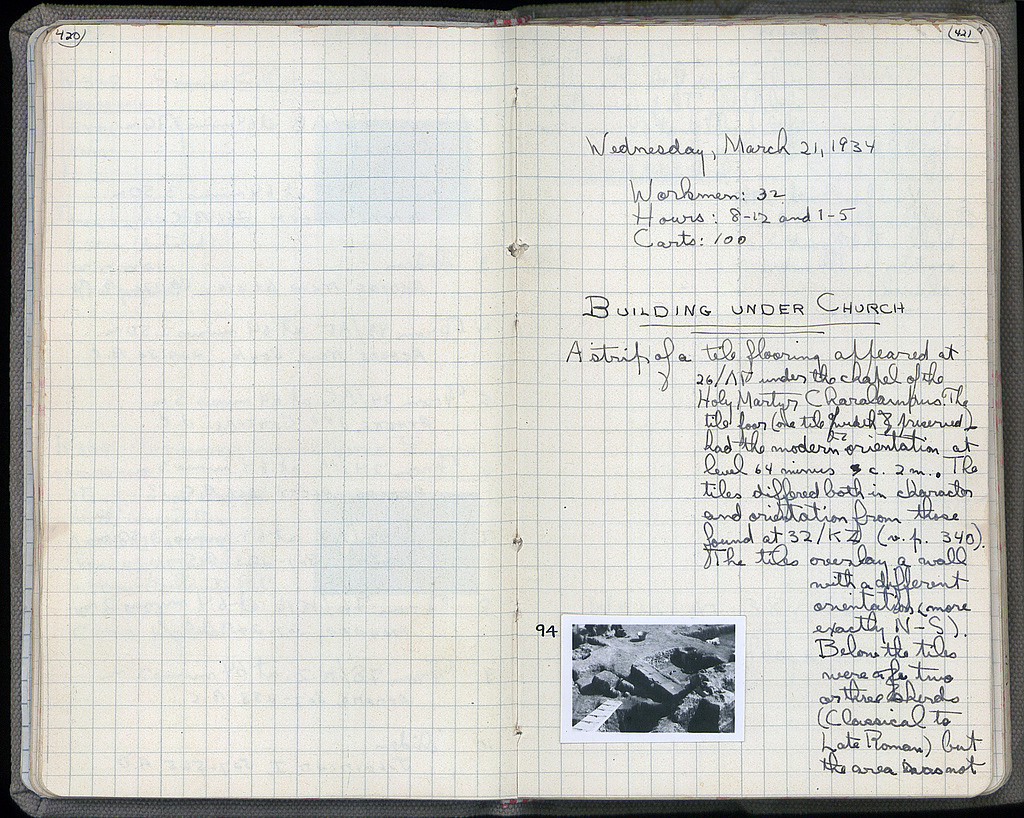 420
421
Wednesday, March 21, 1934
Workmen: 32
Hours: 8-12 and 1-5
Carts: 100
BUILDING UNDER CHURCH
A strip of a tile flooring appeared at
26/ΛΓ under the chapel of the
Holy Martyr Charalampus. The
tile floor (one tile width preserved)
had the modern orientation at
level 64 minus c. 2 m.. The
tiles differed both in character
and orientation from those
found at 32/ΚΖ (v. p. 340).
The tiles overlay a wall
with a different
orientation (more
exactly N-S).
Below the tiles
were a few two
or three sherds
(Classical to
Late Roman) but
the area was not
94